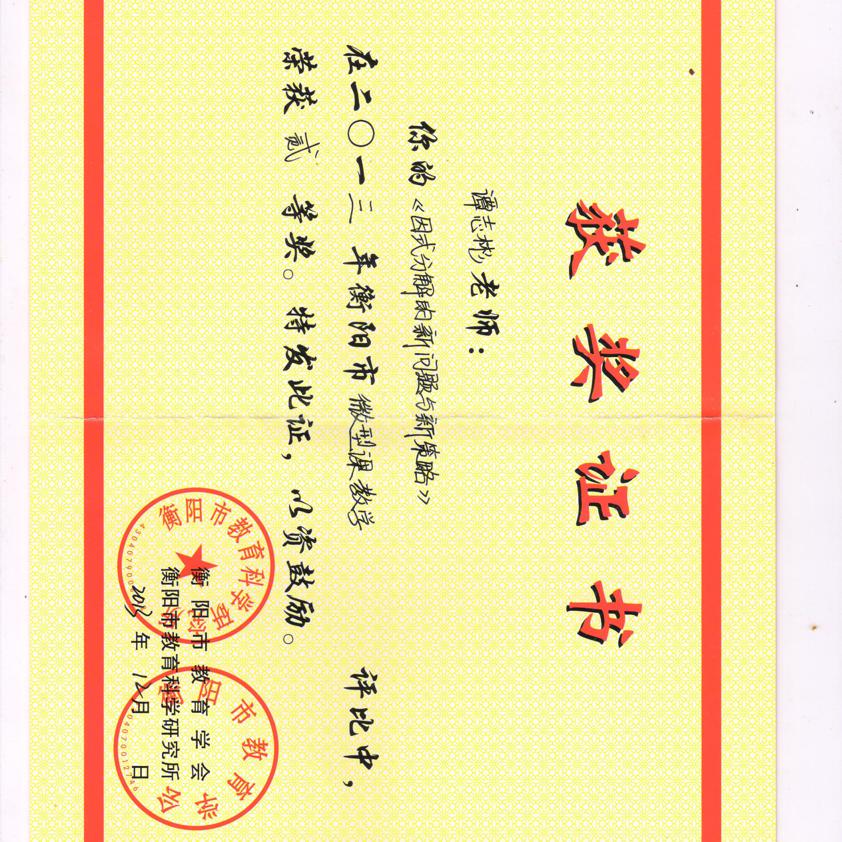 获奖证书
谭志彬老师：
你的《因式分解的新问题与新策略》
在二〇一三年衡阳市微型课教学评比中，
荣获贰等奖。特发此证，以资鼓励。
衡阳市教育学会
衡阳市教育科学研究所
2013年12月 日
衡阳市教育科学研究所
衡阳市教育学会